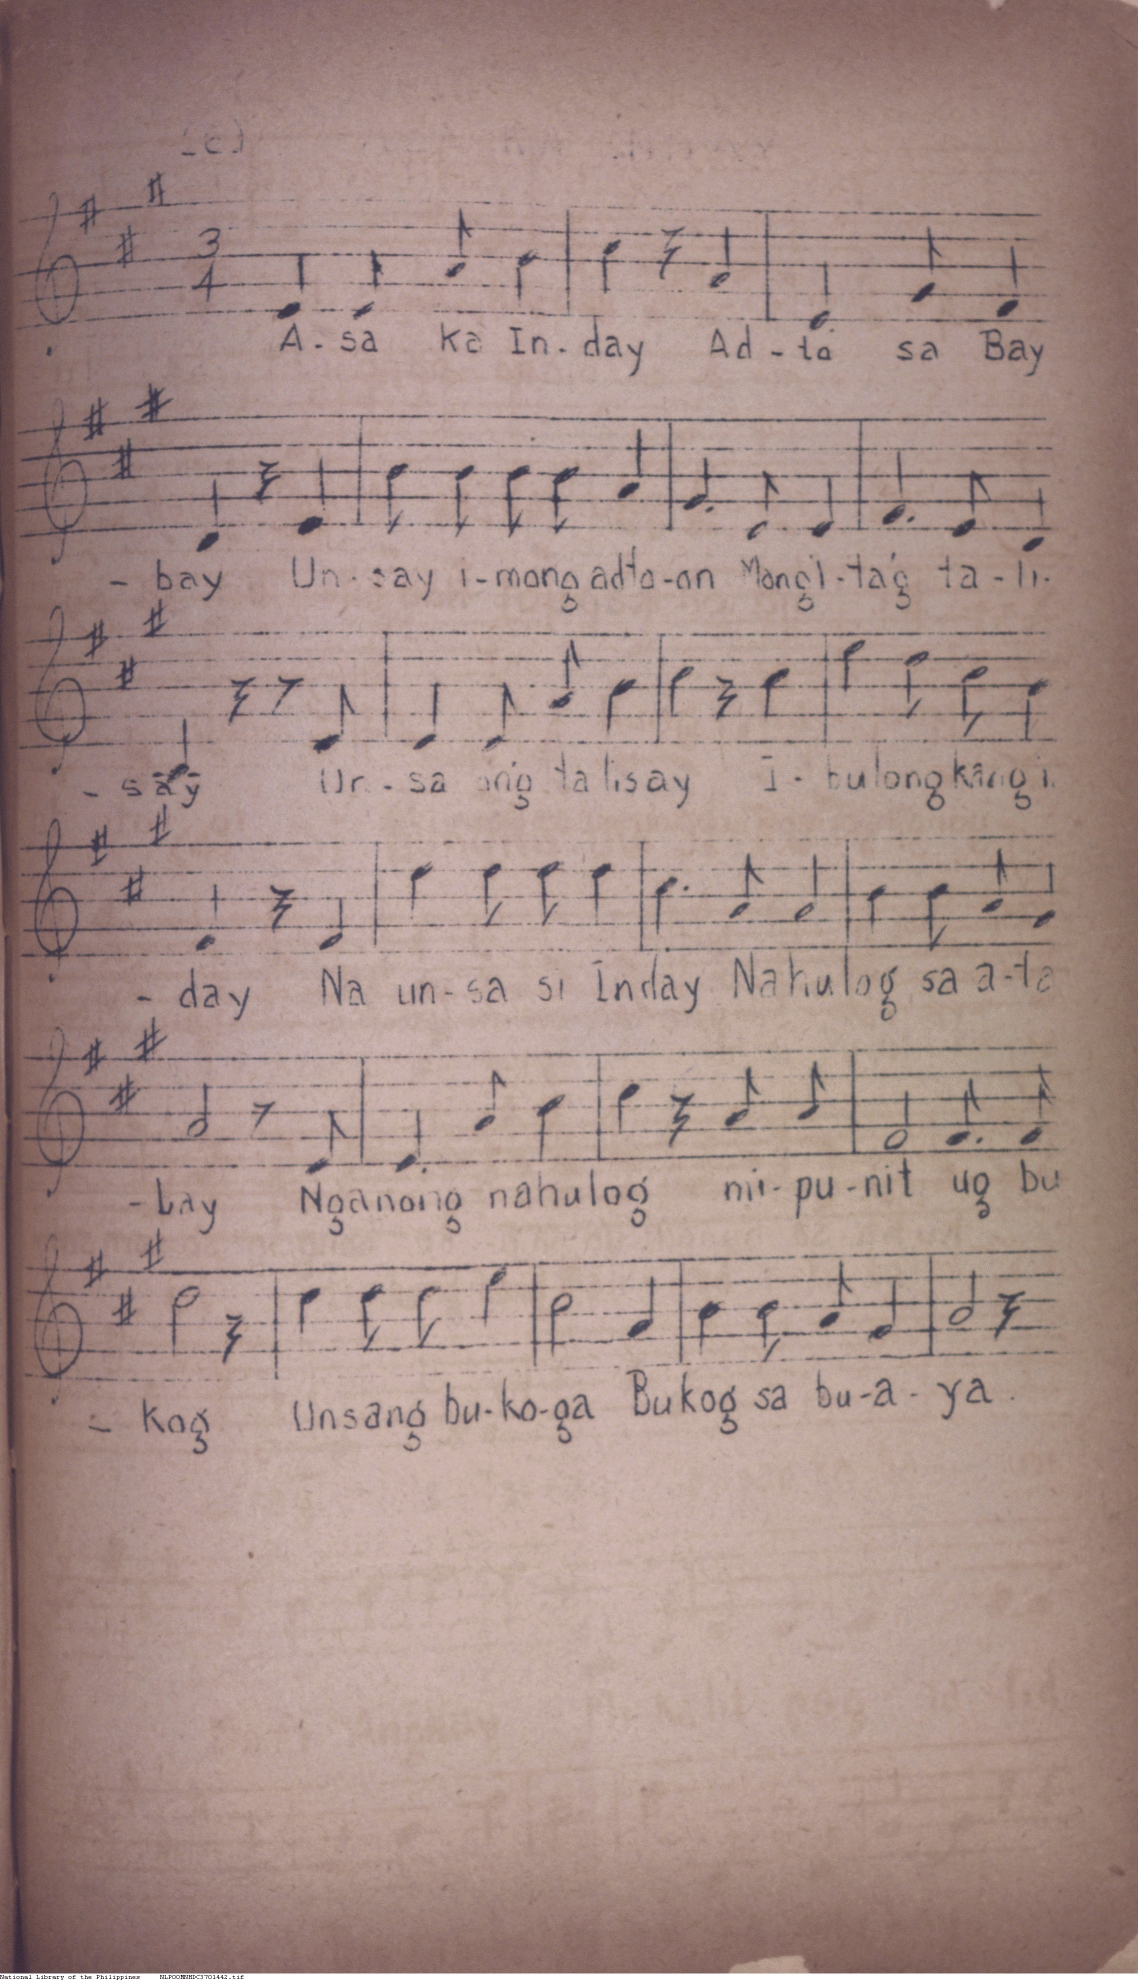 (c)
3
4
A - sa ka In - day Ad - to sa Bay
- bay Un - say i - mong adto - on Mangi - ta'g ta - li -
- say Un - sa ang talisay I - bulong kang i
- day Na un - sa si Inday Nahulog sa a - ta
- bay Nganong nahulog mi - pu - nit ug bu
- kog Unsang bu - ko - ga Bukog sa bu - a - ya .
National Library of the Philippines NLPOOMNHDC3701442.tif